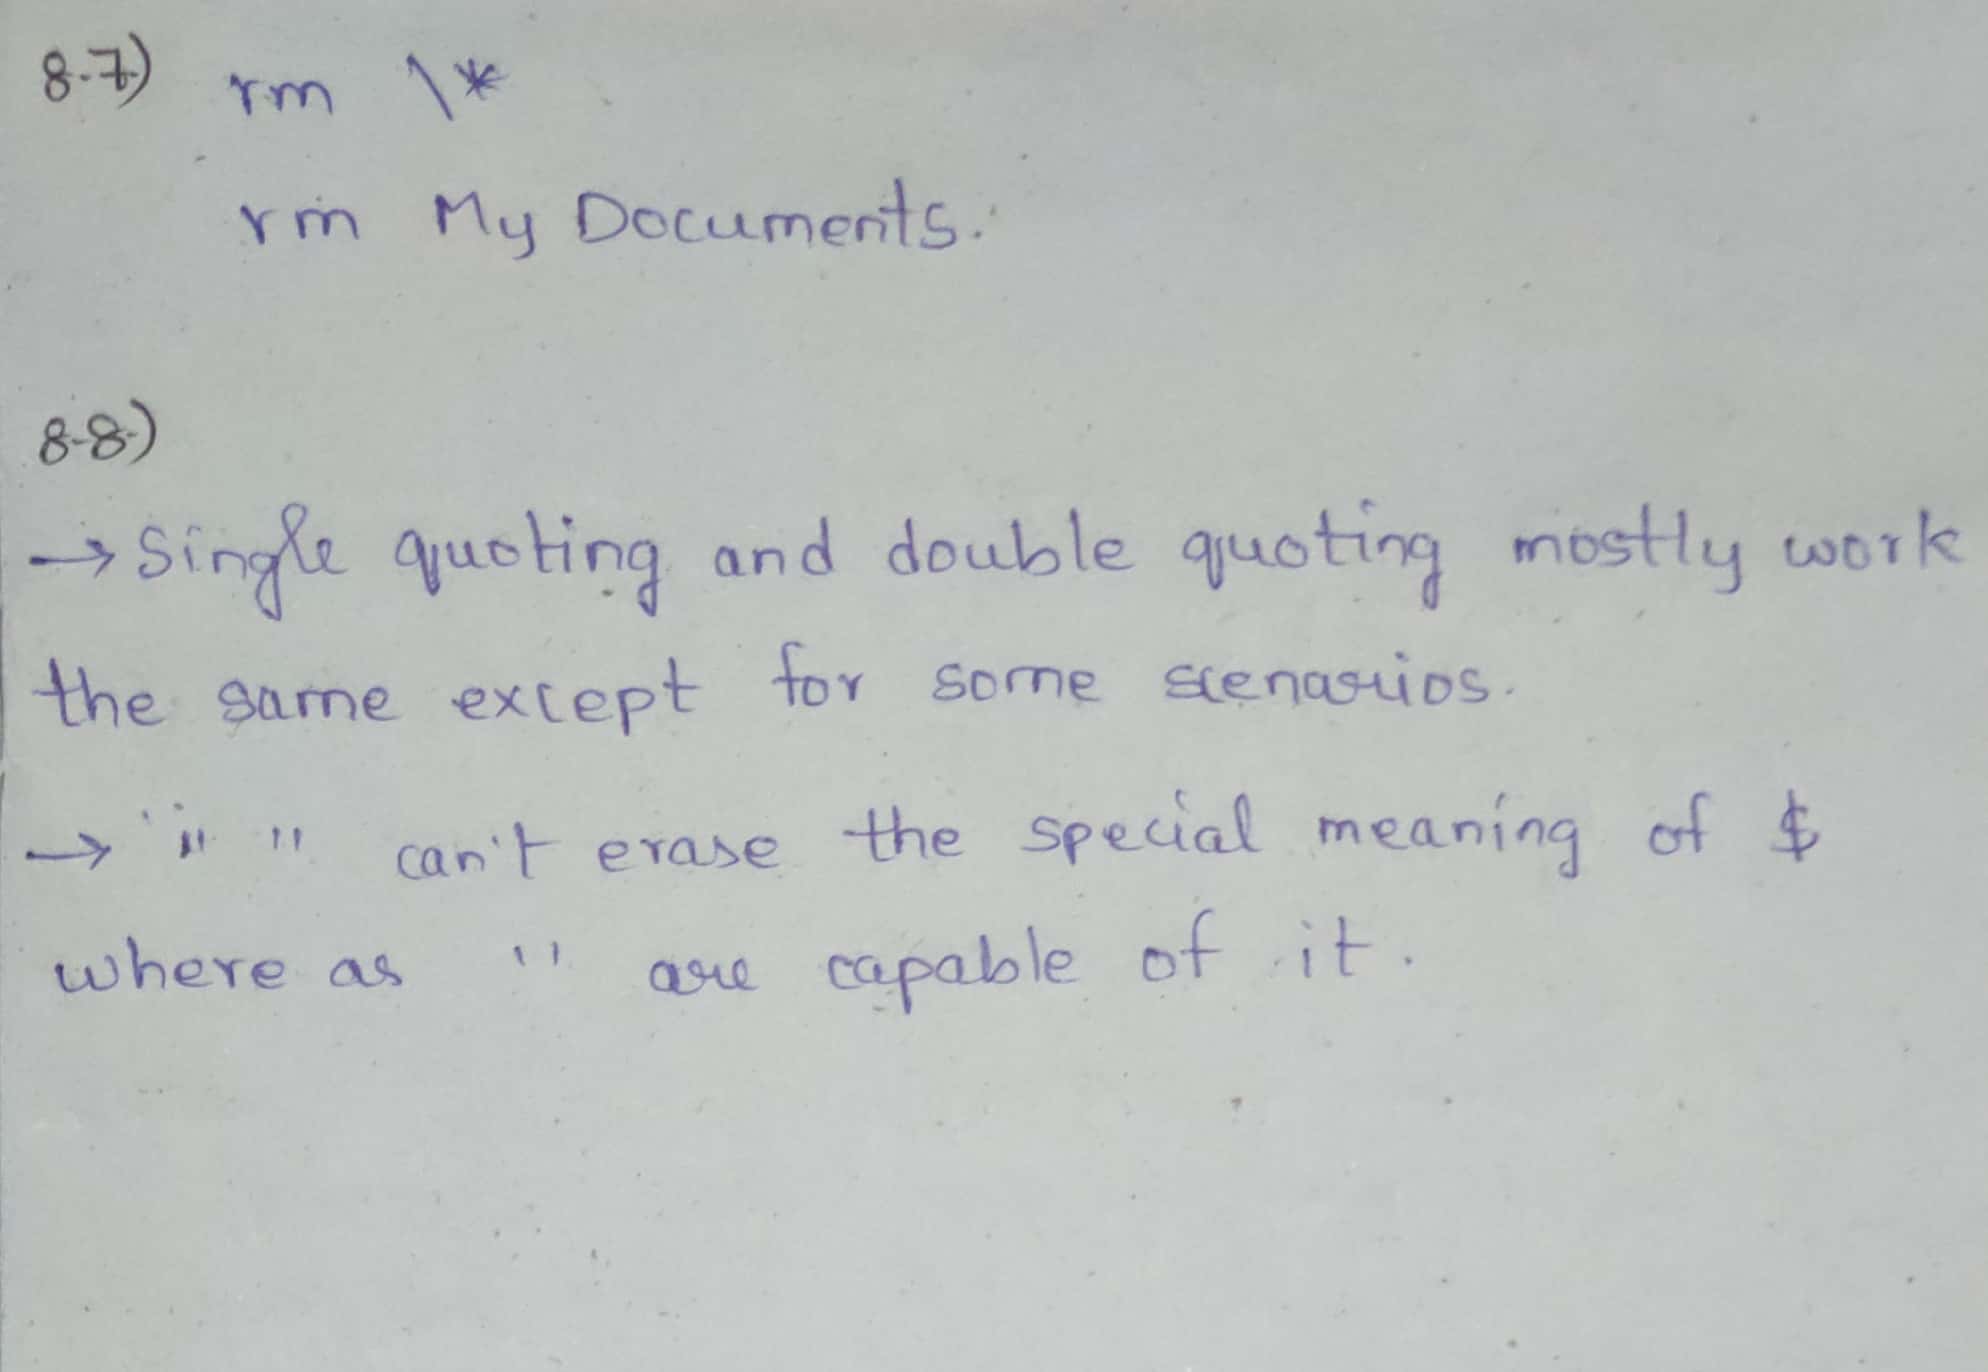 8.7) rm \*
rm My Documents.
8.8)
→ Single quoting and double quoting mostly work
the same except for some scenarios.
→ " " can't erase the special meaning of $
where as ' ' are capable of it.